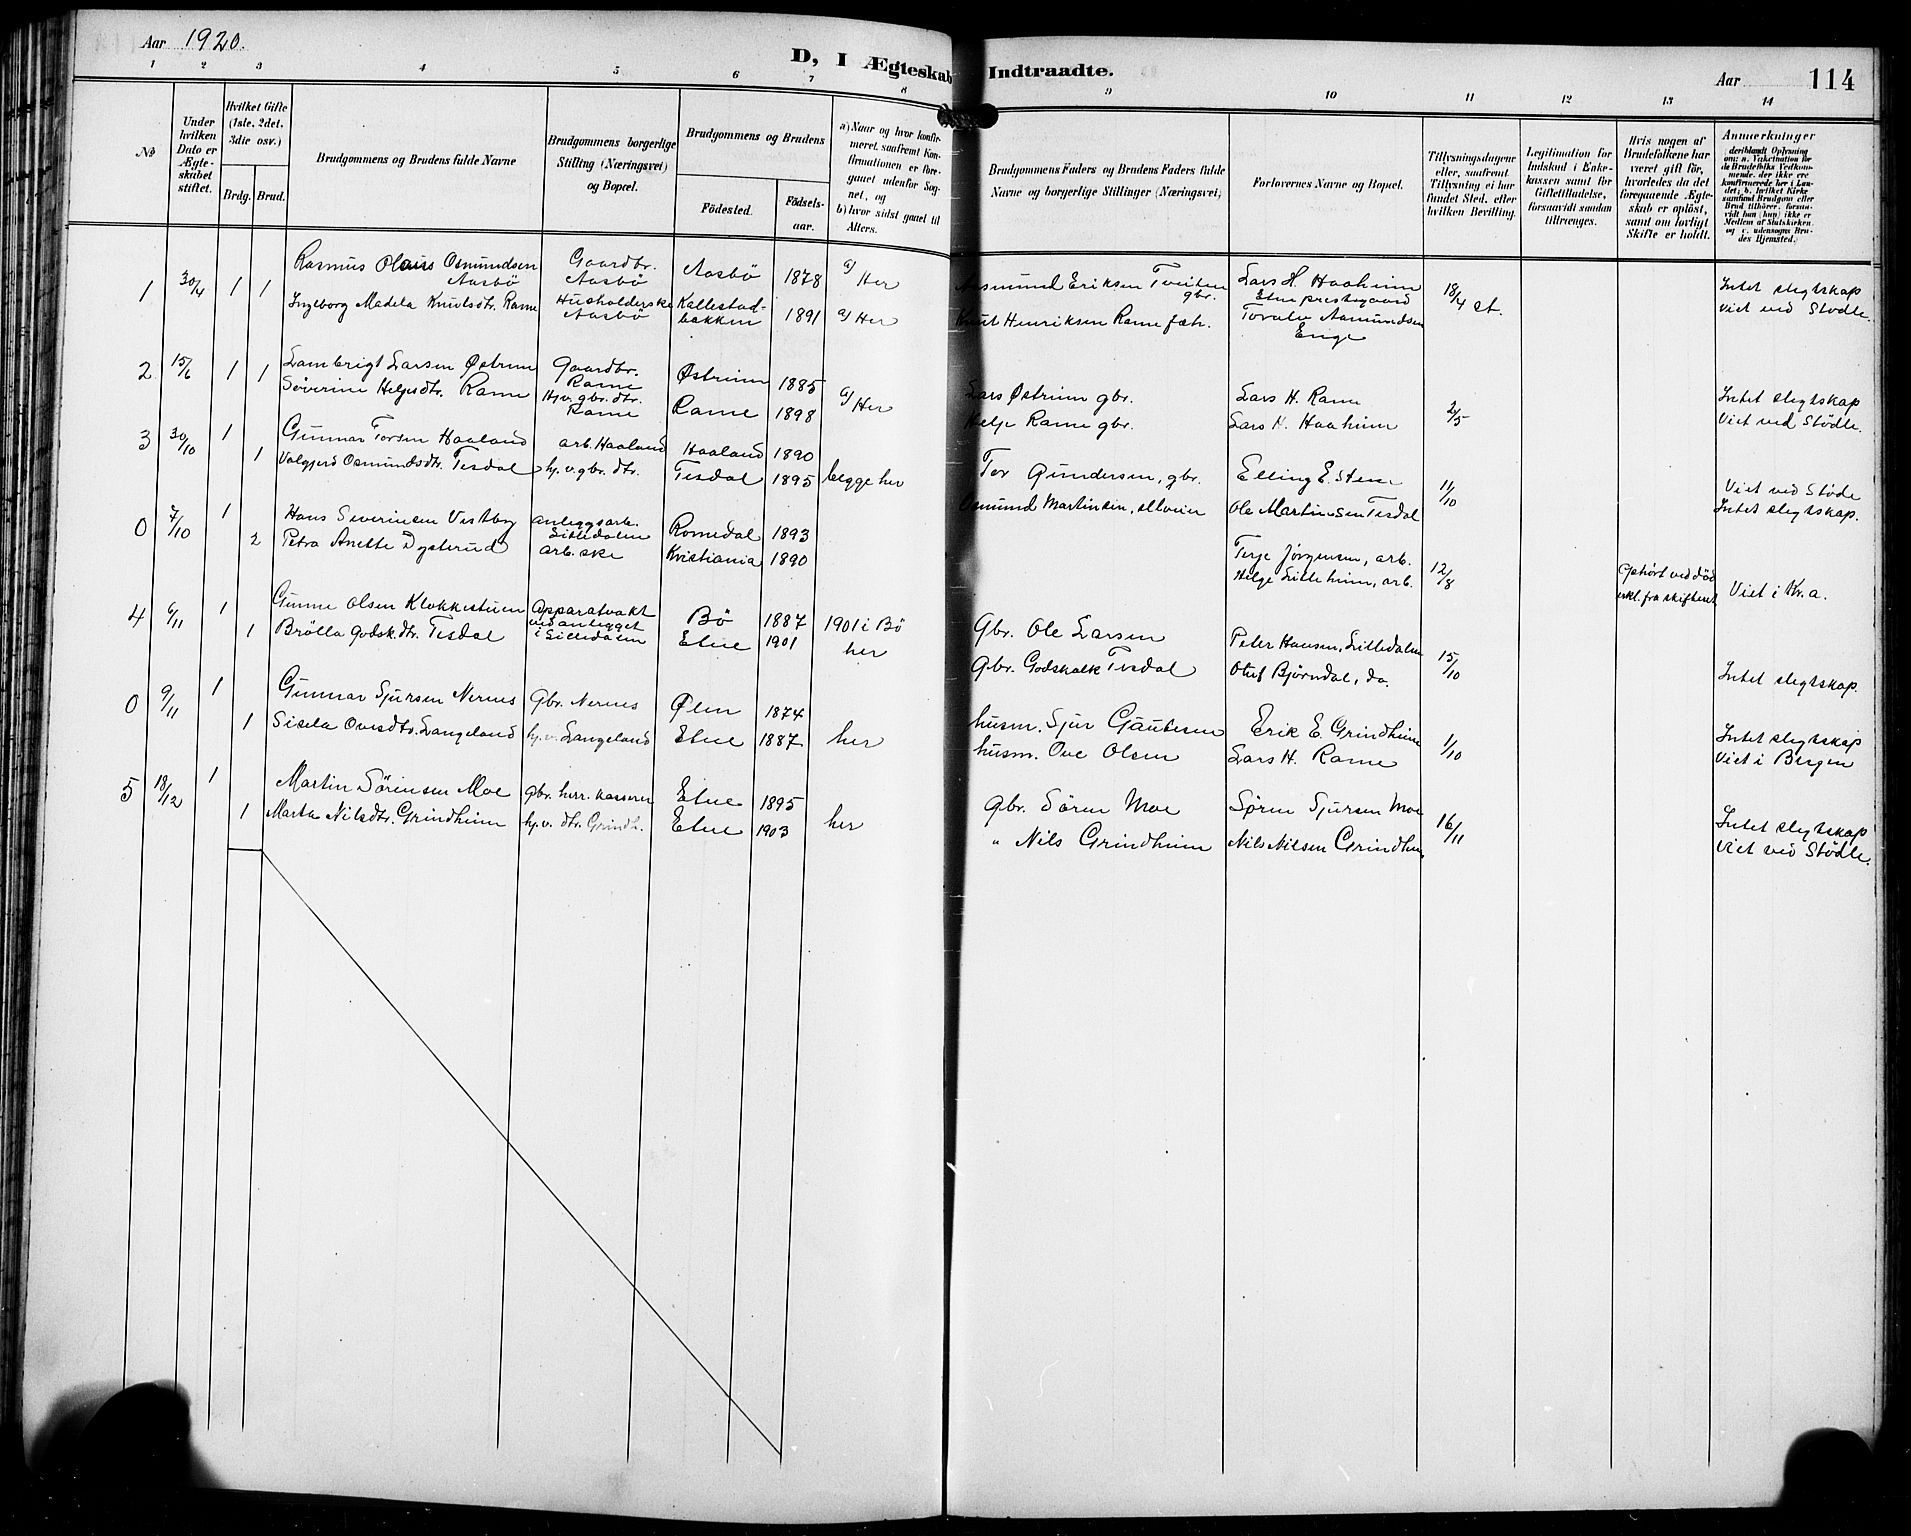 Aar 1920.
D, I Ægteskab Indtraadte.
Aar 114
1 2 3 4 5 6 7 8 9 10 11 12 13 14
No
Under hvilken Dato er Ægteskabet stiftet.
Hvilket Gifte (1ste, 2det, 3die osv.)
Brdg. Brud.
Brudgommens og Brudens fulde Navne
Brudgommens borgerlige Stilling (Næringsvei) og Bopæl.
Brudgommens og Brudens
Fødested. Fødselsaar.
a) Naar og hvor konfirmeret, saafremt Konfirmationen er foregaaet udenfor Sognet, og
b) hvor sidst gaaet til Alters.
Brudgommens Faders og Brudens Faders fulde Navne og borgerlige Stillinger (Næringsvei)
Forlovernes Navne og Bopæl.
Tillysningsdagene eller, saafremt Tillysning ei har fundet Sted, efter hvilken Bevilling.
Legitimation for Indskud i Enkekassen samt for Giftetilladelse, forsaavidt saadan tiltrænges.
Hvis nogen af Brudefolkene har været gift før, hvorledes da det foregaaende Ægteskab er opløst, samt om lovligt Skifte er holdt.
Anmærkninger
deriblandt Oplysning om: a. Vakcination for de Brudefolks Vedkommende, der ikke ere konfirmerede her i Landet; b. hvilket Kirkesamfund Brudgom eller Brud tilhører, forsaavidt han (hun) ikke er Medlem af Statskirken, og c. udensogns Brudes Hjemsted.)
1 30/4 1 1 Rasmus Olaus Osmundsen Aasbö Gaardbr. Aasbö Aasbö 1878 a/ Her Aasmund Eriksen Tveiten gbr. Lars H. Haaheim Etne prestegaard 18/4 et. Intet slegtskap
Ingeborg Madela Knutsdtr. Rame Husholderske Aasbö Kallestadbakken 1891 a/ Her Knut Henriksen Rame fæh. Torale Aamundsen Enge Viet ved Stödle.
2 15/6 1 1 Lambrigt Larsen Østrem Gaardbr. Rame Østrem 1885 Lars Østrem gbr. Lars H. Rame 2/5 Intet slegtskap
Søverine Heljesdtr. Rame Hj.v. gbr. dtr. Rame Rame 1898 a/ Her Helje Rame gbr. Lars H. Haaheim Viet ved Stödle.
3 30/10 1 Gunnar Torsen Haaland arb. Haaland Haaland 1890 Tor Gundersen, gbr. Elling E. Stene 11/10 Viet ved Stödle
1 Valgjerd Osmundsdtr. Tesdal hj.v. gbr. dtr. Tesdal 1895 begge her Osmund Martinsen, Ole Martinsen Tesdal Intet slegtskap.
0 7/10 1 Hans Severinsen Vestby anleggsarb. Litledalen Romedal 1893 Terje Jørgensen, arb. 12/8 Ophört ved död
2 Petra Anette Dysterud arb.ske Kristiania 1890 Helge Litleheim, arb. erkl. fra skifteret Viet i Kr.a.
4 6/11 1 Gunne Olsen Klokkestuen Apparatvakt ved anlegget i Litledalen Bö 1887 1901 i Bö Gbr. Ole Larsen Peter Hansen, Litledalen 15/10
1 Brölla Godsk.dtr. Tesdal Etne 1901 her Gbr. Godskalk Tesdal Oluf Bjørndal, do. Intet slegtskap.
0 9/11 1 Gunnar Sjursen Nernes Gbr. Nernes Ølen 1874 husm. Sjur Gautesen Erik E. Grindheim 1/10 Intet slegtskap
1 Sisela Ovesdtr. Langeland hj.v. Langeland Etne 1887 her husm. Ove Olsen Lars H. Rame Viet i Bergen
5 18/12 1 Martin Sörensen Moe Gbr. herr. kasserer Etne 1895 Gbr. Sören Moe Sören Sjursen Moe 16/11 Intet slegtskap
1 Marta Nilsdtr. Grindheim hj.v. dtr. Grindh. Etne 1903 her " Nils Grindheim Nils Nilsen Grindheim Viet ved Stödle.